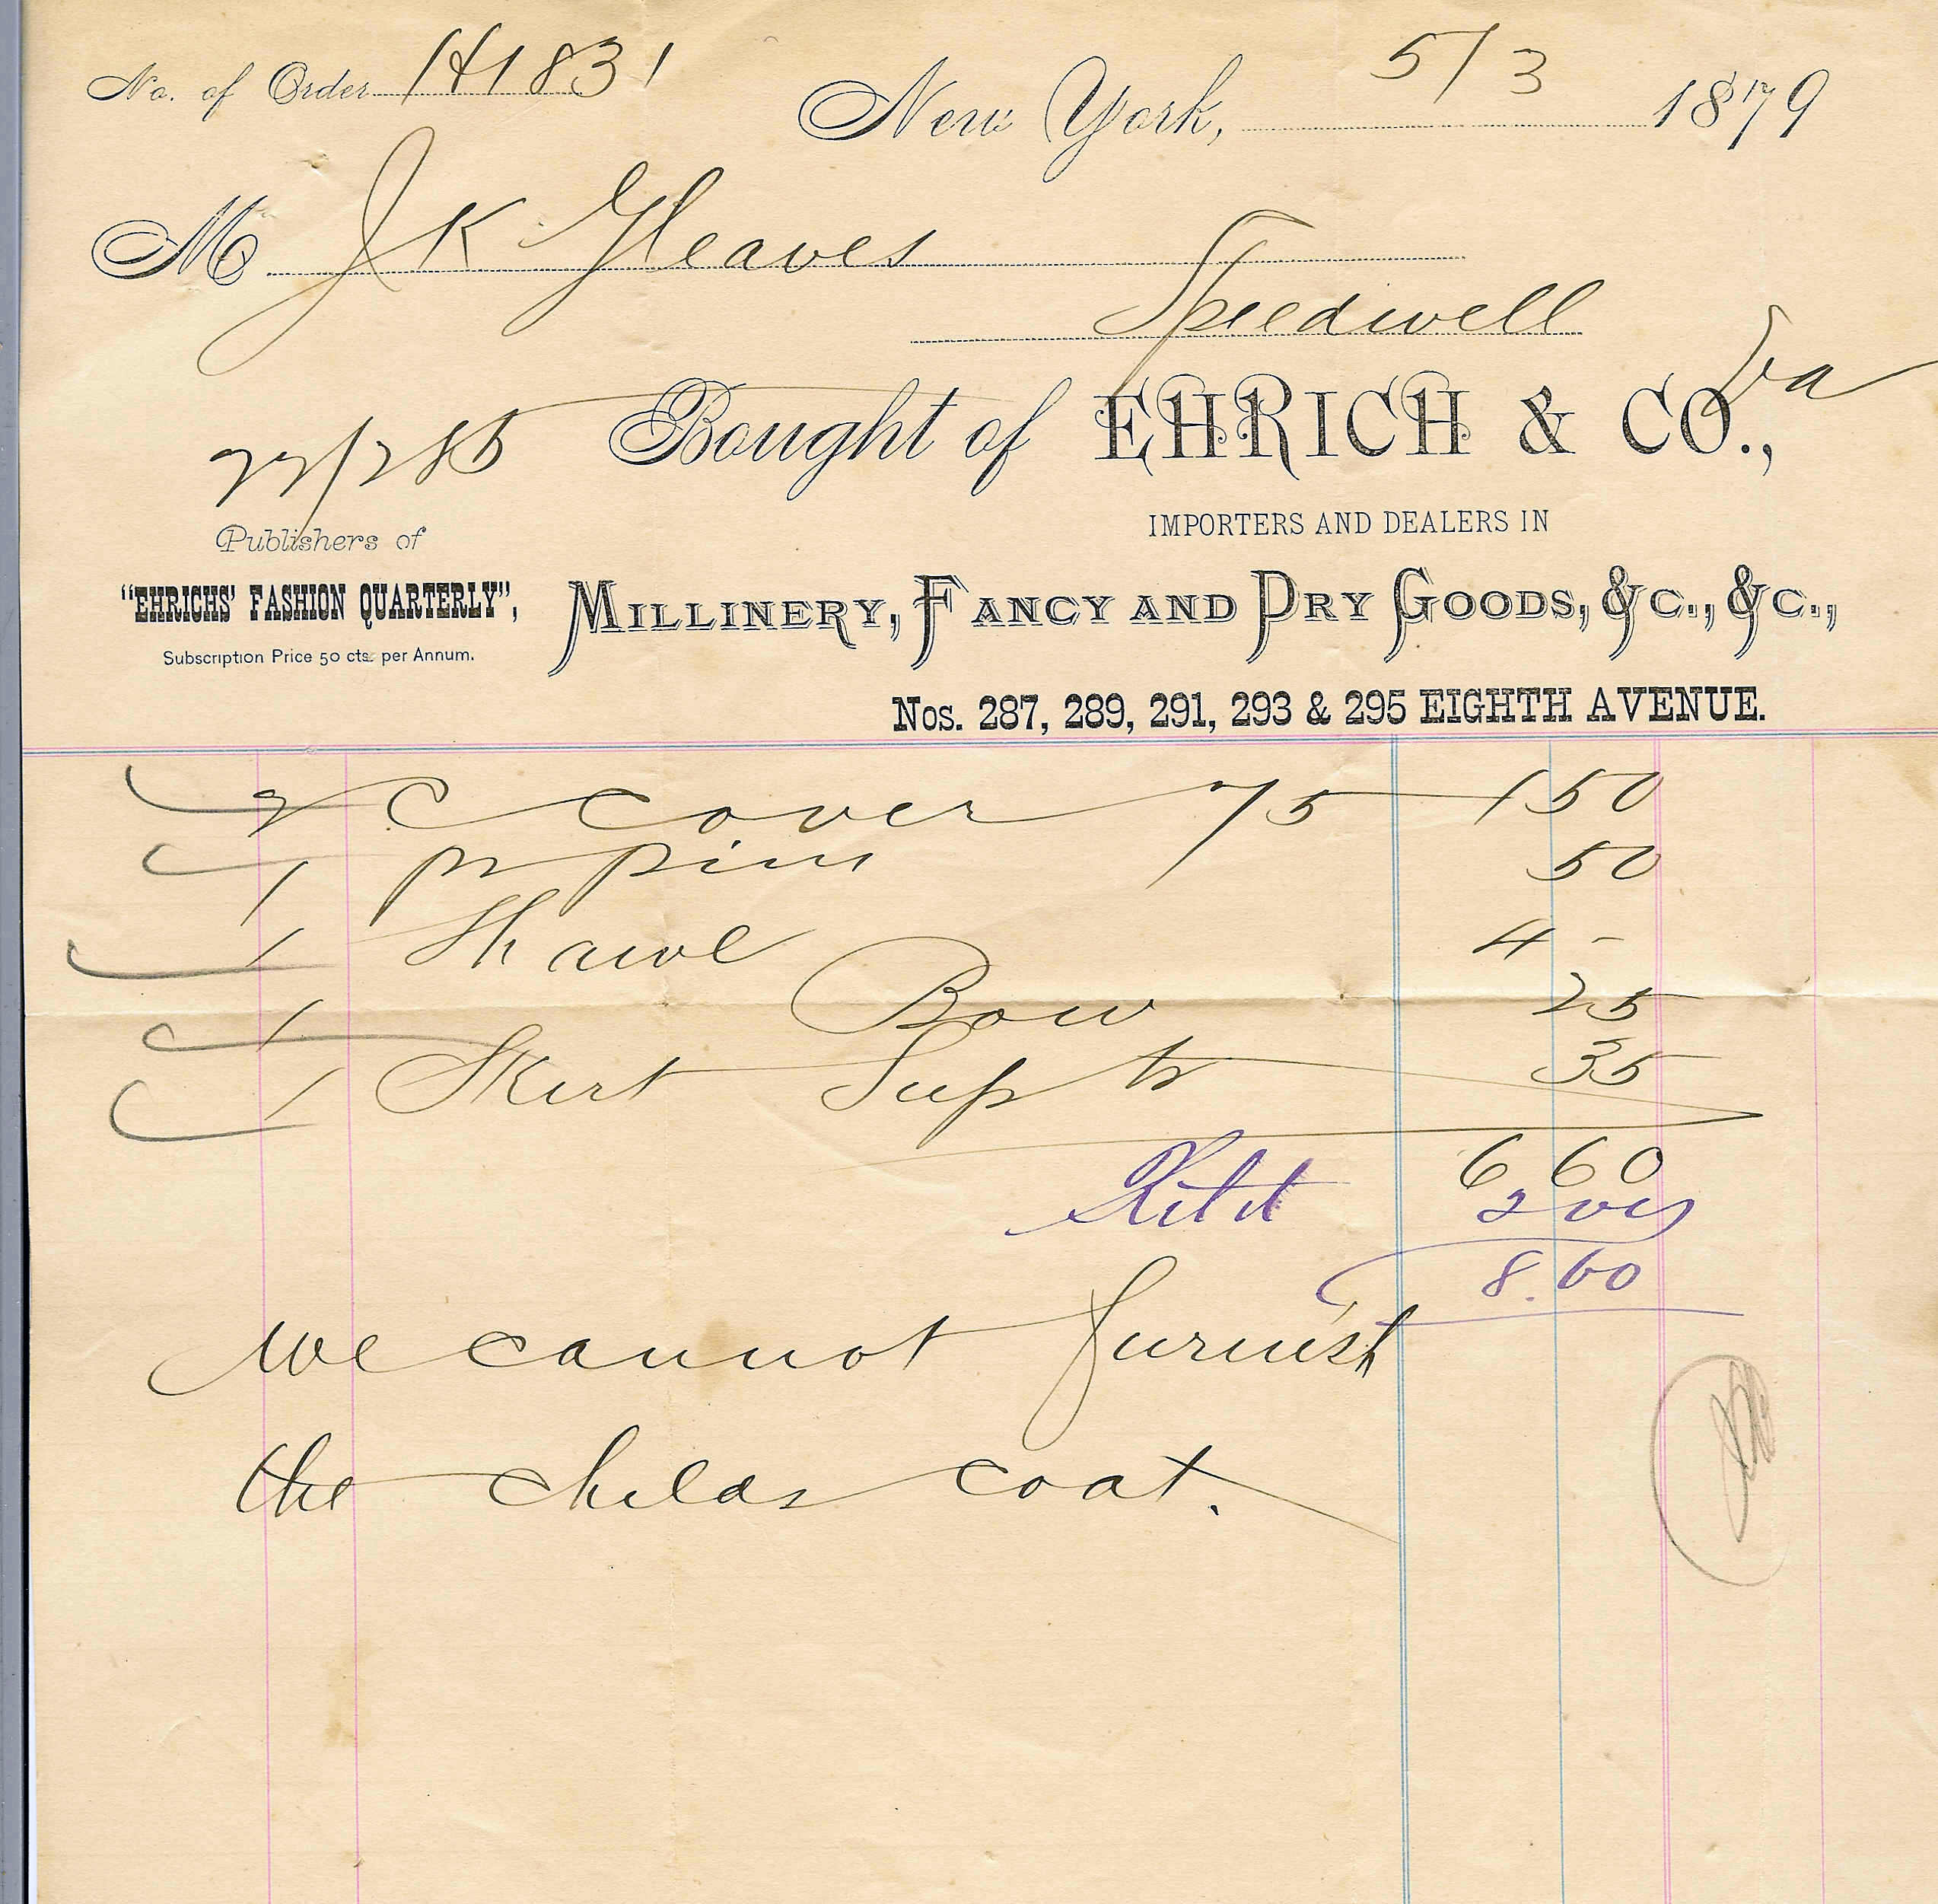 No. of Order H1831
New York, 5/3 1879
M J K Gleaves
Speedwell Va
Bought of EHRICH & CO.,
IMPORTERS AND DEALERS IN
Publishers of
"EHRICHS' FASHION QUARTERLY",
Subscription Price 50 cts. per Annum.
MILLINERY, FANCY AND DRY GOODS, &C., &C.,
Nos. 287, 289, 291, 293 & 295 EIGHTH AVENUE.
2 C Cover 75 1 50
1 pr pins 50
1 Shawl 4 -
1 Bow 25
1 Skirt Sup tr 35
6 60
2
8.60
We cannot furnish
the childs coat.